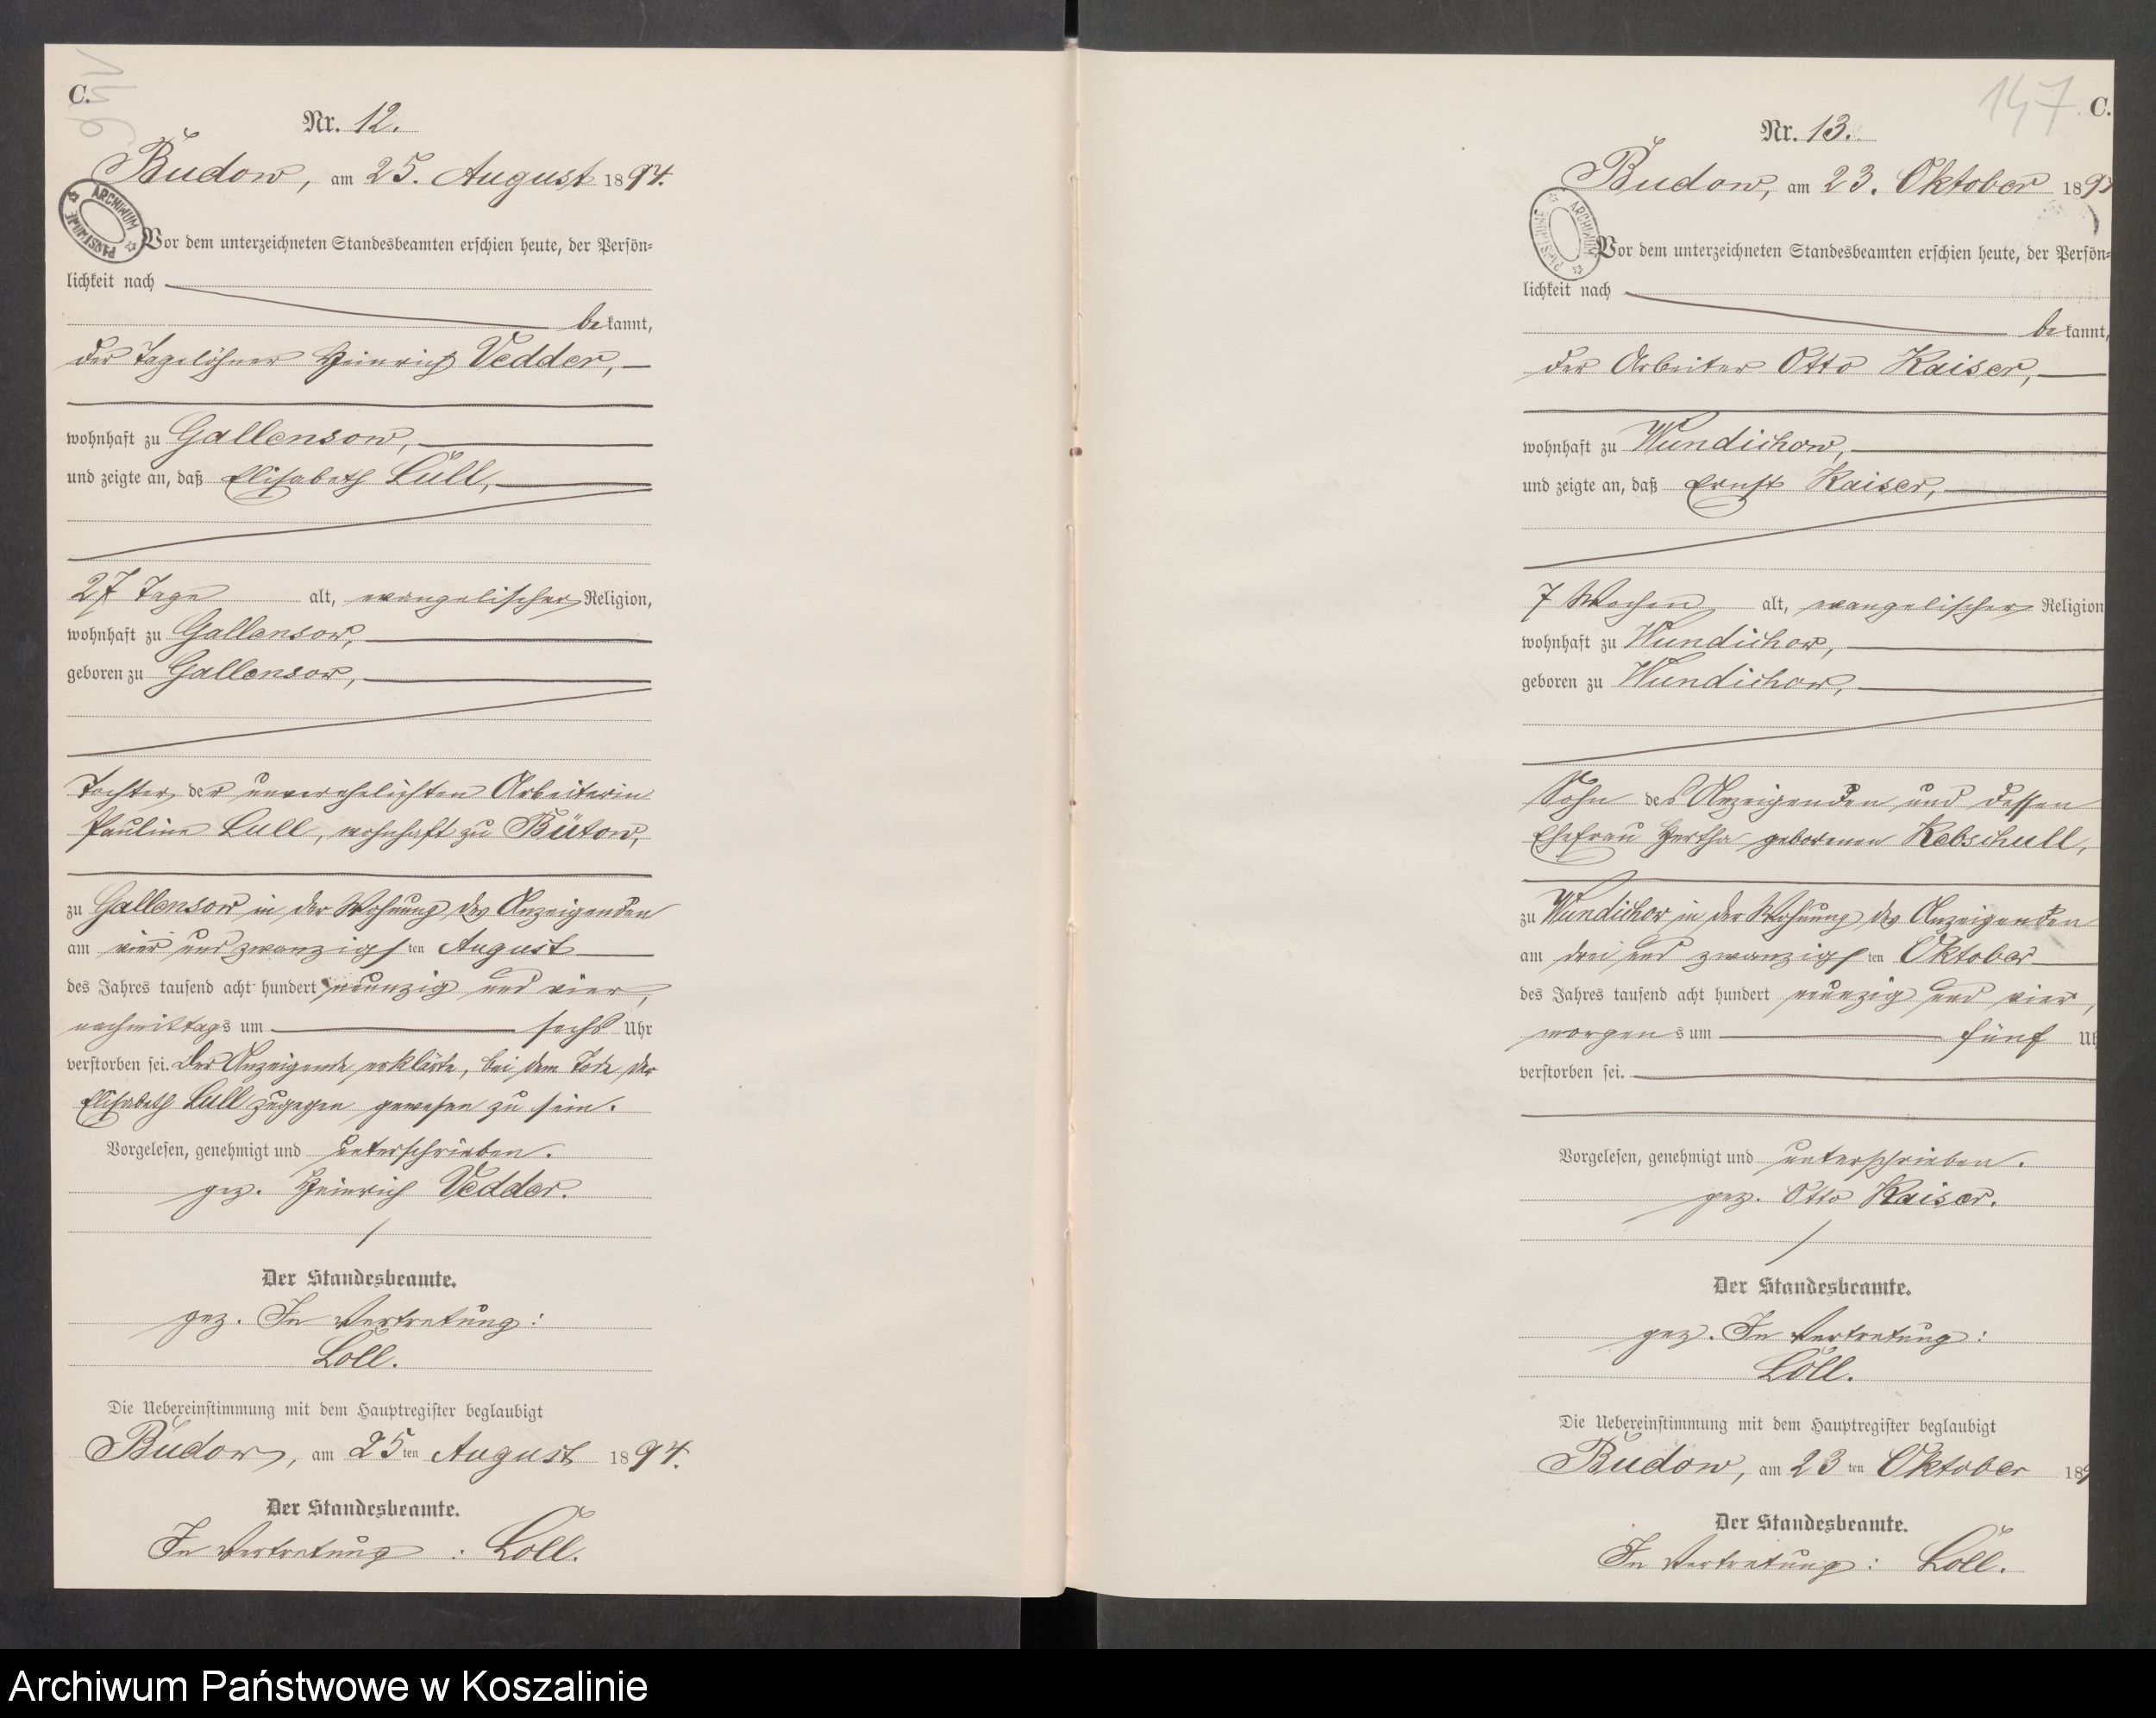 C.
Nr. 12.
Budow, am 25. August 1894.
ARCHIWUM PAŃSTWOWE
Vor dem unterzeichneten Standesbeamten erschien heute, der Persön-
lichkeit nach
bekannt,
der Tagelöhner Heinrich Vedder,
wohnhaft zu Gallensow,
und zeigte an, daß Elisabeth Lüll,
27 Tage alt, evangelischer Religion,
wohnhaft zu Gallensow,
geboren zu Gallensow,
Tochter der unverehelichten Arbeiterin
Pauline Lull, wohnhaft zu Bütow,
zu Gallensow in der Wohnung des Anzeigenden
am vier und zwanzigsten August
des Jahres tausend acht hundert neunzig und vier,
nachmittags um sechs Uhr
verstorben sei. Der Anzeigende erklärte, bei dem Tode der
Elisabeth Lull zugegen gewesen zu sein.
Vorgelesen, genehmigt und unterschrieben.
gez. Heinrich Vedder.
Der Standesbeamte.
gez. In Vertretung:
Löll.
Die Uebereinstimmung mit dem Hauptregister beglaubigt
Budow, am 25ten August 1894.
Der Standesbeamte.
In Vertretung: Löll.
147
C.
Nr. 13.
Budow, am 23. Oktober 189
ARCHIWUM PAŃSTWOWE
Vor dem unterzeichneten Standesbeamten erschien heute, der Persön-
lichkeit nach
bekannt,
der Arbeiter Otto Kaiser,
wohnhaft zu Wundichow,
und zeigte an, daß Ernst Kaiser,
7 Wochen alt, evangelischer Religion
wohnhaft zu Wundichow,
geboren zu Wundichow,
Sohn des Anzeigenden und dessen
Ehefrau Hertha geborenen Kebschull,
zu Wundichow in der Wohnung des Anzeigenden
am drei und zwanzigsten Oktober
des Jahres tausend acht hundert neunzig und vier,
morgens um fünf Uh
verstorben sei.
Vorgelesen, genehmigt und unterschrieben.
gez. Otto Kaiser.
Der Standesbeamte.
gez. In Vertretung:
Löll.
Die Uebereinstimmung mit dem Hauptregister beglaubigt
Budow, am 23ten Oktober 189
Der Standesbeamte.
In Vertretung: Löll.
Archiwum Państwowe w Koszalinie